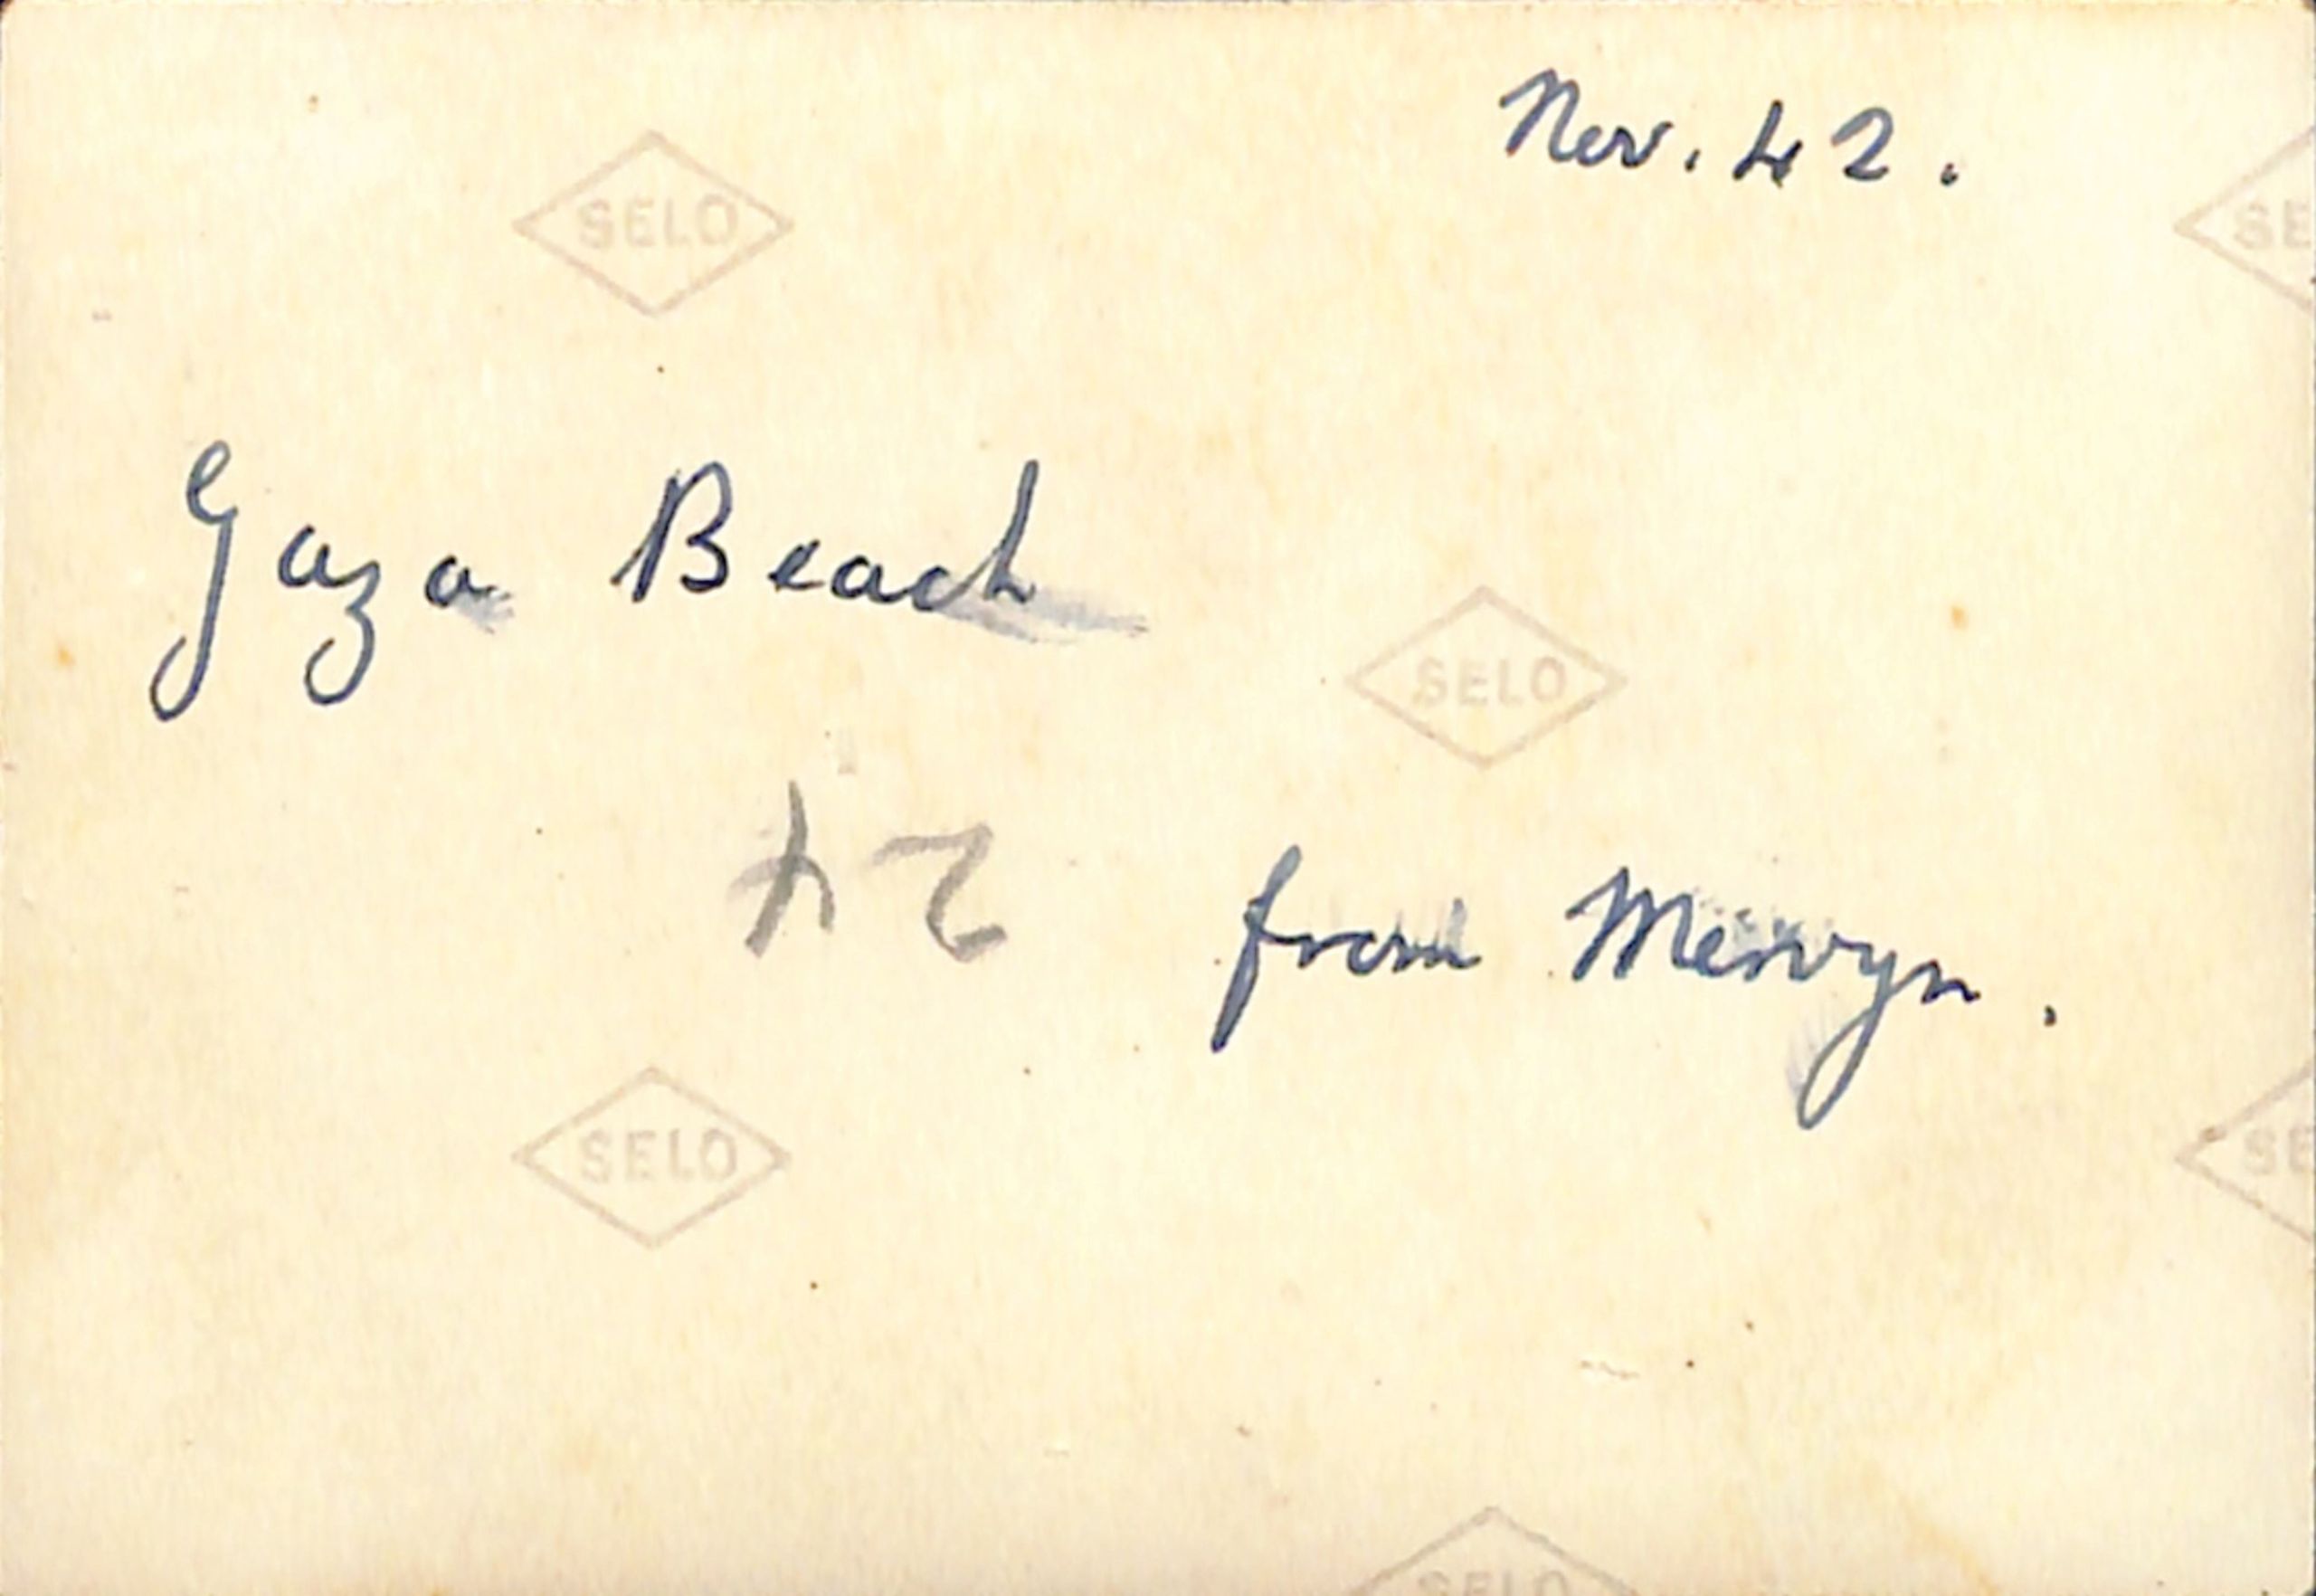 Nov. 42.
SELO
SE
Gaza Beach
SELO
42
from Mervyn.
SELO
SE
SELO